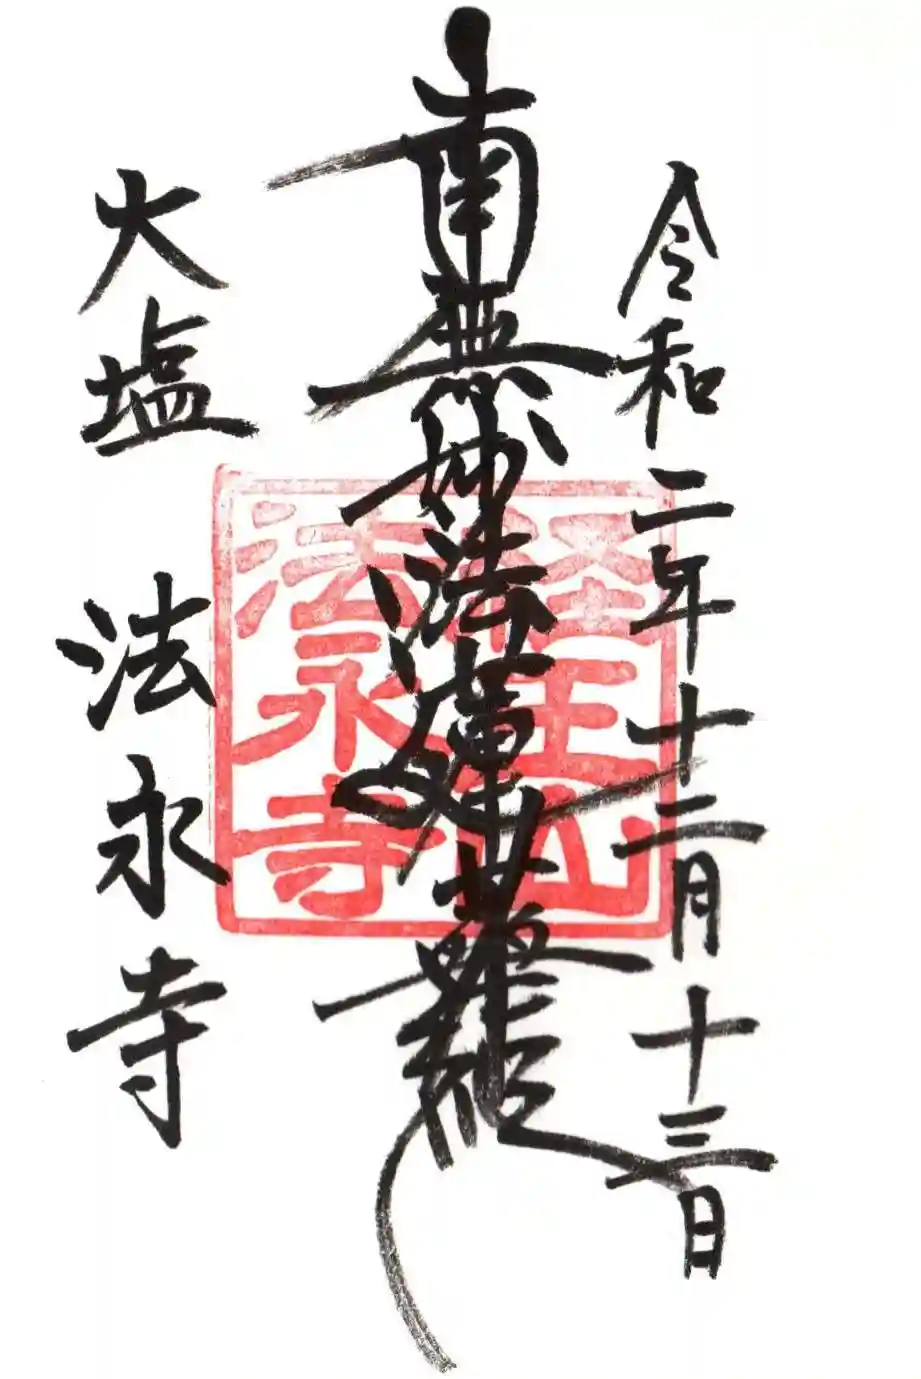 令和二年十二月十三日
南無妙法蓮華經
大塩 法永寺
経王山
法永寺